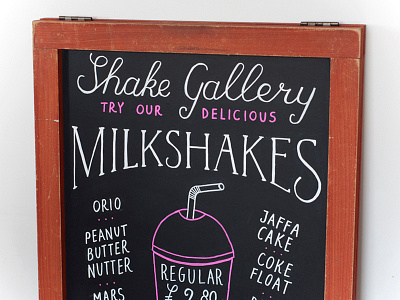 Shake Gallery
TRY OUR DELICIOUS
MILKSHAKES
ORIO
PEANUT
BUTTER
NUTTER
MARS
REGULAR
£2.80
JAFFA
CAKE
COKE
FLOAT